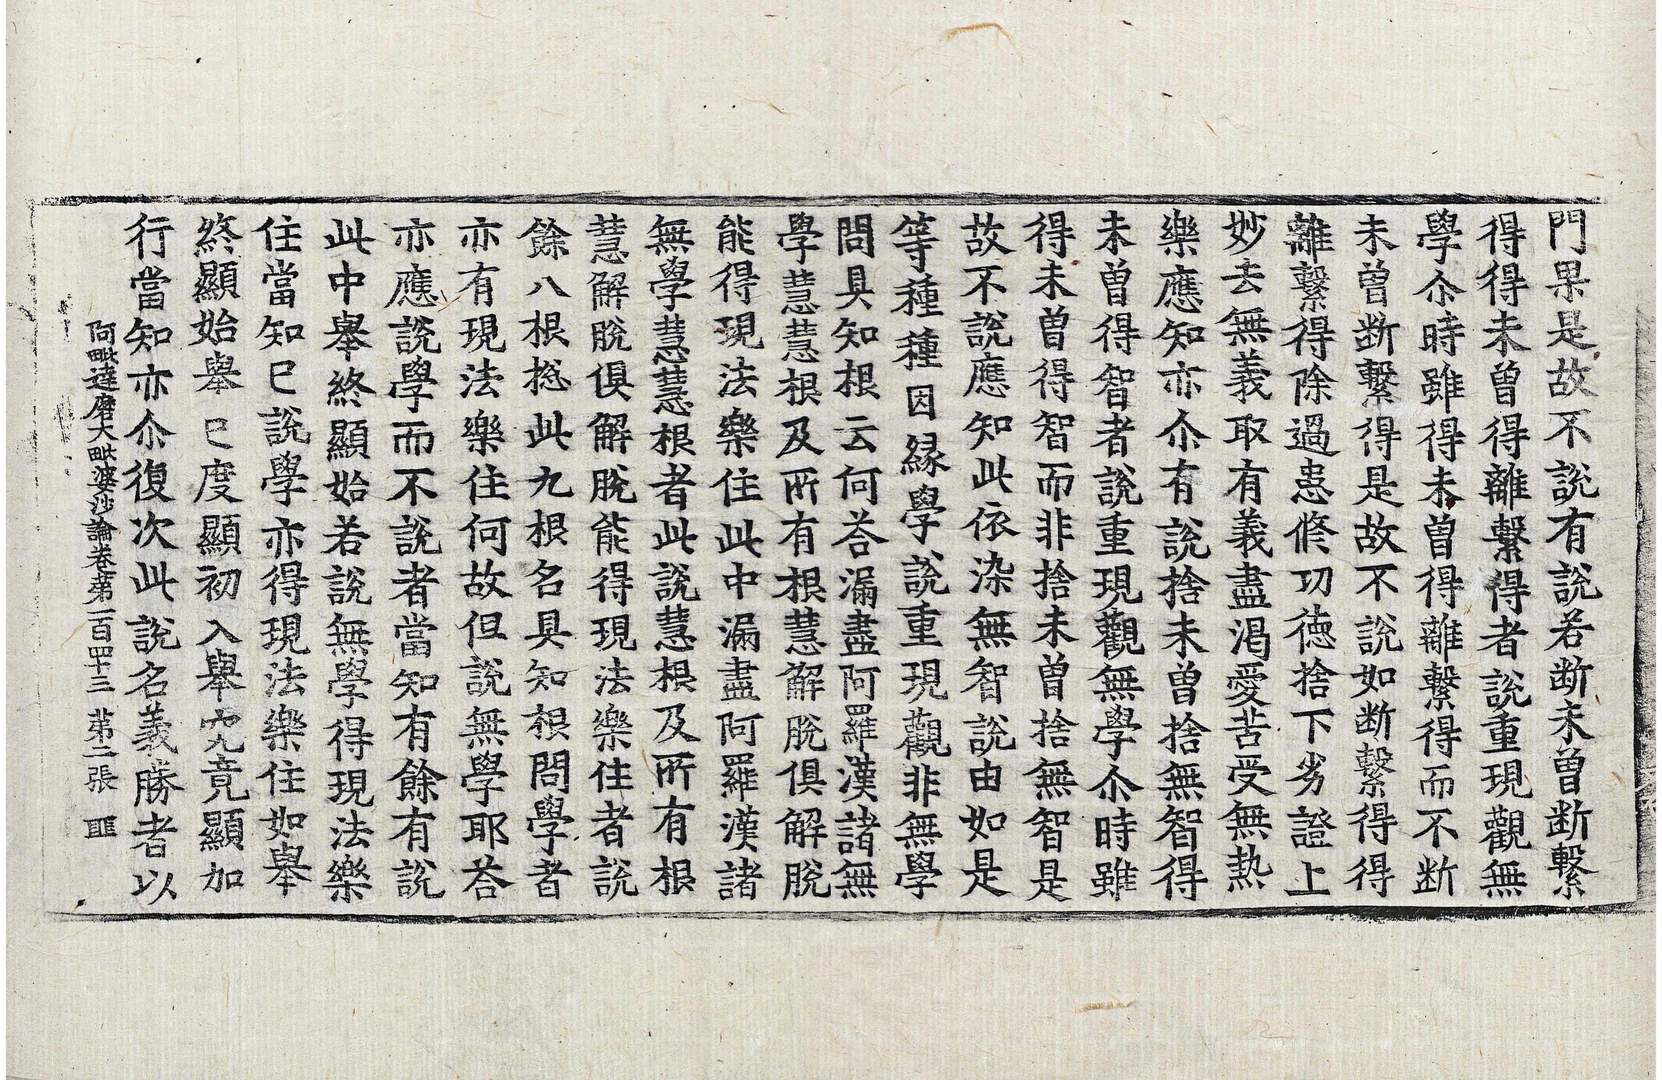 門果是故不說有說若断未曾断繫
得得未曾得離繫得者說重現觀無
學尒時雖得未曾得離繫得而不断
未曾断繫得是故不說如断繫得得
離繫得除過患修功徳捨下劣證上
妙去無義取有義盡渇愛苦受無熱
樂應知亦尒有說捨未曾捨無智得
未曾得智者說重現觀無學尒時雖
得未曾得智而非捨未曾捨無智是
故不說應知此依染無智說由如是
等種種因縁學說重現觀非無學
問具知根云何荅漏盡阿羅漢諸無
學慧慧根及所有根慧解脫俱解脫
能得現法樂住此中漏盡阿羅漢諸
無學慧慧根者此說慧根及所有根
慧解脫俱解脫能得現法樂住者說
餘八根捴此九根名具知根問學者
亦有現法樂住何故但說無學耶荅
亦應說學而不說者當知有餘有說
此中舉終顯始若說無學得現法樂
住當知已說學亦得現法樂住如舉
終顯始舉已度顯初入舉究竟顯加
行當知亦尒復次此說名義勝者以
阿毗達磨大毗婆沙論卷第一百四十三 第二張 匪